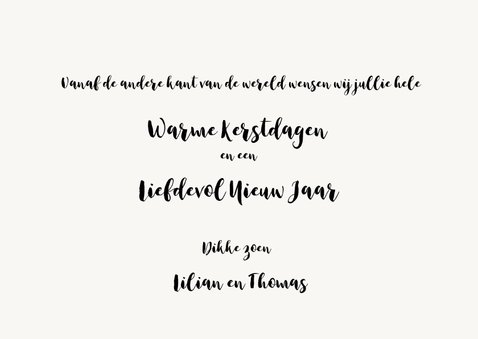 Vanaf de andere kant van de wereld wensen wij jullie hele
Warme Kerstdagen
en een
Liefdevol Nieuw Jaar
Dikke zoen
Lilian en Thomas